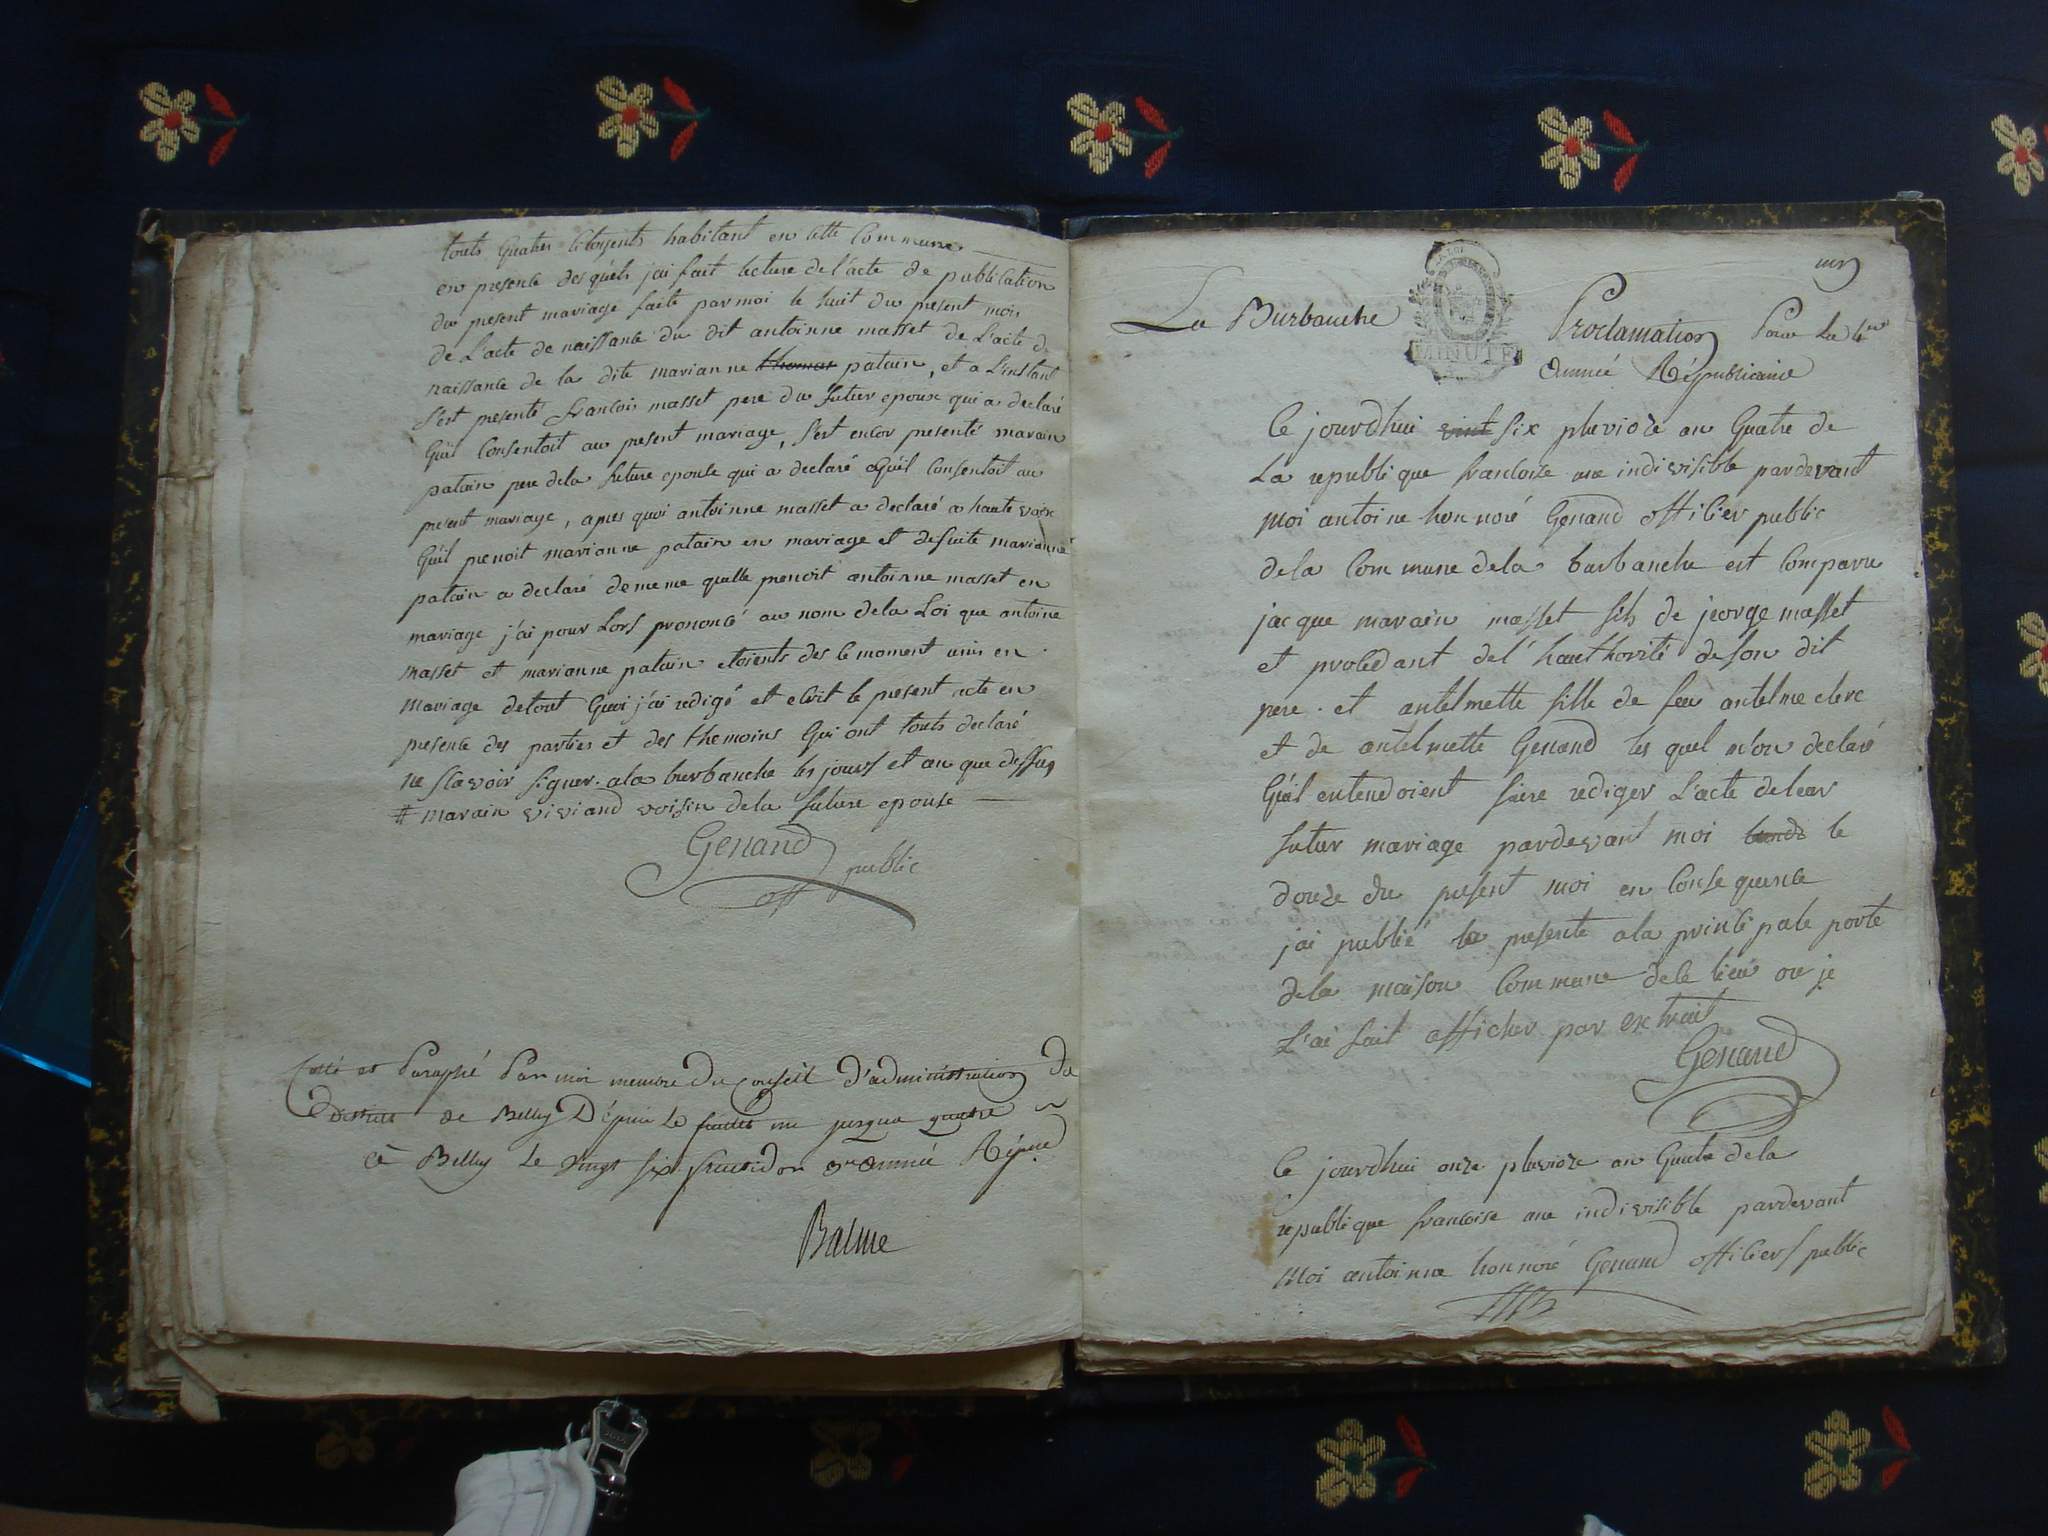 touts quatres citoyents habitant en cette commune
en presence des quels j'ai fait lecture de l'acte de publication
du present mariage faite par moi le huit du present mois
de l'acte de naissance du dit antoinne masset de l'acte de
naissance de la dite marianne thomas patain, et a l'instant
s'est presenté francois masset pere du futur epoux qui a declaré
qu'il consentoit au present mariage, s'est encor presenté marain
patain pere de la future epouse qui a declaré qu'il consentoit au
present mariage, apres quoi antoinne masset a declaré a haute voix
qu'il prenoit marianne patain en mariage et desuite marianne
patain a declaré de meme quelle prenoit antoinne masset en
mariage j'ai pour lors prononcé au nom de la Loi que antoine
masset et marianne patain etoients des le moment unis en
mariage de tout quoi j'ai redigé et ecrit le present acte en
presence des parties et des themoins qui ont touts declaré
ne scavoir signer. a la burbanche les jours et an que dessus
# marain viviand voisin de la future epouse
Genand
off public
Cotté et Paraphé Par moi membre du Conseil d'administration du
District de Belley Dépuis le feuillet un jusqua quatre
à Belley le vingt six fructidor 3e année Répue
Balme
un
La Burbanche
MINUTE
Proclamation Pour La 4me
Année Républicaine
Ce jourdhui vint six pluvioze an quatre de
La republique francoise une indivisible pardevant
moi antoine honnoré Genand officier public
de la commune de la burbanche est comparu
jacque marain masset fils de jeorge masset
et procedant de l'hauthorité de son dit
pere. et antelmette fille de feu antelme clerc
et de antelmette Genand les quel m'on declaré
qu'il entendoient faire rediger l'acte de leur
futur mariage pardevant moi lundi le
douze du present moi en consequence
j'ai publié la presente a la principale porte
de la maison commune de ce lieu ou je
l'ai fait afficher par extrait
Genand
Ce jourdhui onze pluvioze an quatre de la
republique francoise une indivisible pardevant
moi antoinne honnoré Genand officiers public